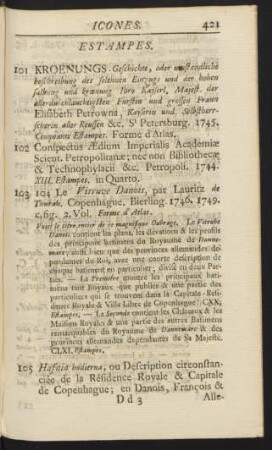 ICONES. 421
ESTAMPES.
101 KROENUNGS-Geschichte, oder umständliche
beschreibung des solennen Einzugs und der hohen
salbung und krönung Ihro Kayserl. Majest. der
allerdurchlauchtigsten Fürstin und grossen Frauen
Elisabeth Petrowna, Kayserin und Selbstherr-
scherin aller Reussen &c. St Petersburg. 1745.
Cinquante Estampes. Forme d'Atlas.
102 Conspectus Ædium Imperialis Academiæ
Scient. Petropolitanæ; nec non Bibliothecæ
& Technophylacii &c. Petropoli. 1744.
XIII. Estampes. in Quarto.
103 104 Le Vitruve Danois, par Lauritz de
Thurah. Copenhague, Bierling. 1746. 1749.
c. fig. 2. Vol. Forme d'Atlas.
Voici le titre entier de ce magnifique Ouvrage. Le Vitruve
Danois contient les plans, les élévations & les profils
des principaux batimens du Royaume de Danne-
marc; aussi bien que des provinces allemandes dé-
pendentes du Roi, avec une courte description de
chaque batiment en particulier; divisé en deux Par-
ties. — La Première contient les principaux bati-
mens tant Royaux que publics & une partie des
particuliers qui se trouvent dans la Capitale-Rési-
dence Royale & Ville Libre de Copenhague: CXX.
Estampes. — La Seconde contient les Chateaux & les
Maisons Royales & une partie des autres Batimens
remarquables du Royaume de Dannemarc & des
provinces allemandes dépendentes de Sa Majesté.
CLXI. Estampes.
105 Hafnia hodierna, ou Description circonstan-
ciée de la Résidence Royale & Capitale
de Copenhague; en Danois, François &
D d 3 Alle-